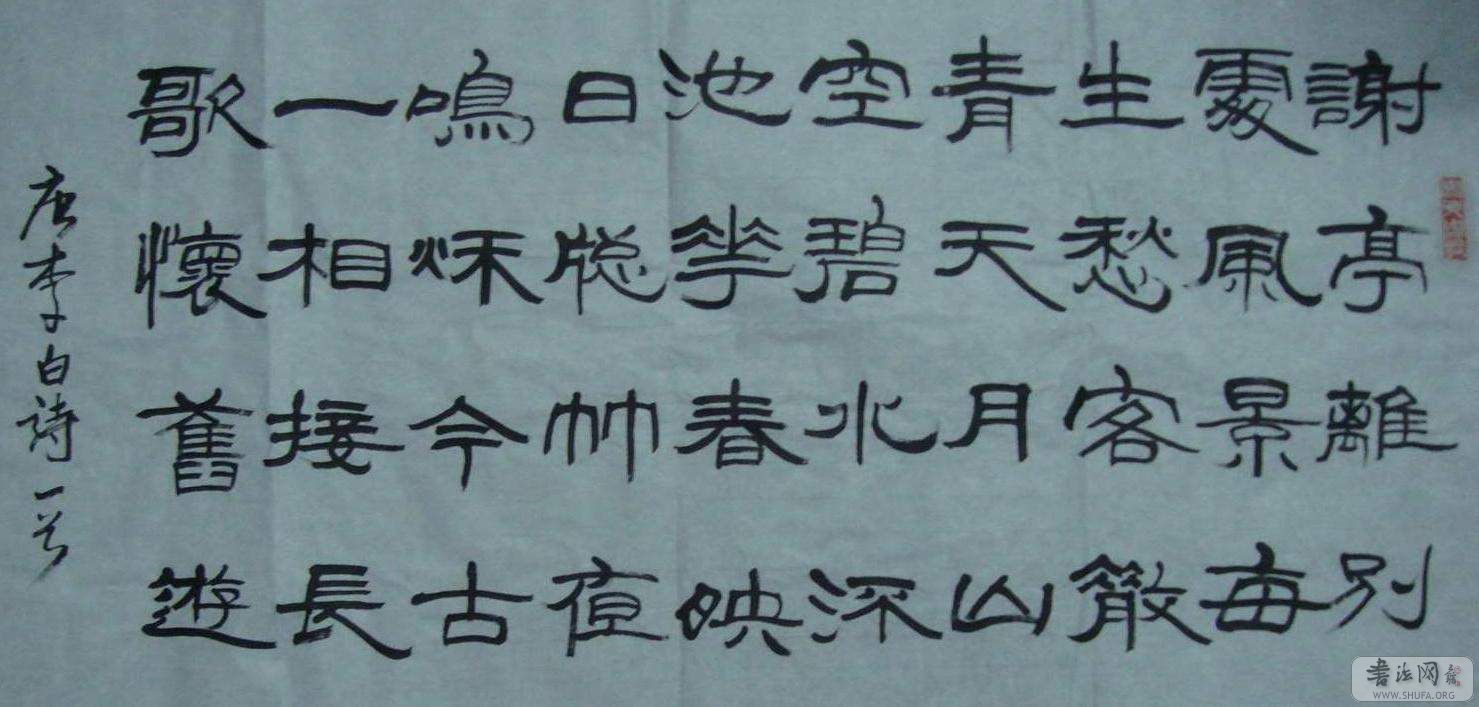 謝亭離別
處風景每
生愁客散
青天月山
空碧水深
池花春映
日牎竹夜
鳴秌今古
一相接長
歌懷舊遊
唐李白詩一首
书法网
WWW.SHUFA.ORG